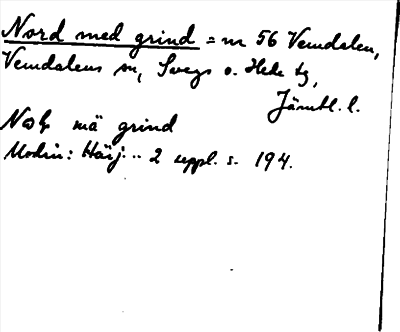 Nord med grind = nr 56 Vemdalen,
Vemdalens sn, Svegs o. Hede tg,
Jämtl. l.
mä grind
Modin: Härj. .. 2 uppl. s. 194.